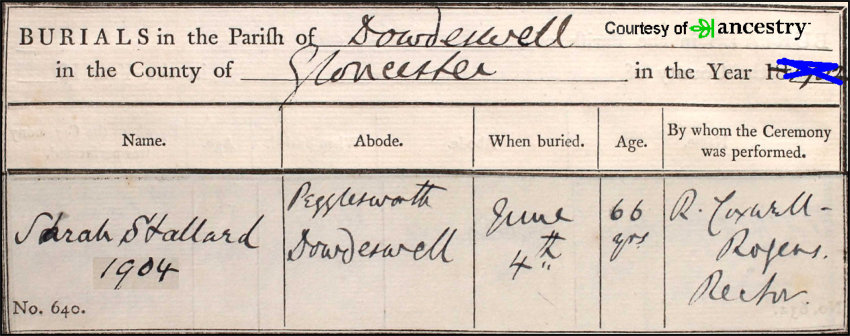 Courtesy of ancestry
BURIALS in the Parish of Dowdeswell
in the County of Gloucester in the Year 18
Name. Abode. When buried. Age. By whom the Ceremony was performed.
Sarah Stallard
1904
No. 640.
Pegglesworth
Dowdeswell
June
4th
66
yrs
R. Coxwell-
Rogers.
Rector.